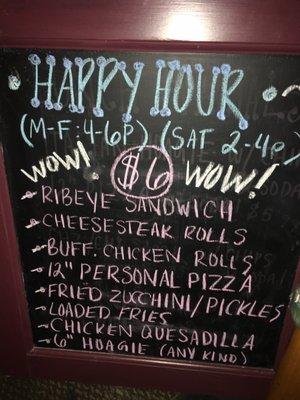 HAPPY HOUR
(M-F: 4-6P) (SAT 2-4P)
WOW! $6 WOW!
RIBEYE SANDWICH
CHEESESTEAK ROLLS
BUFF. CHICKEN ROLLS
12" PERSONAL PIZZA
FRIED ZUCCHINI/PICKLES
LOADED FRIES
CHICKEN QUESADILLA
6" HOAGIE (ANY KIND)